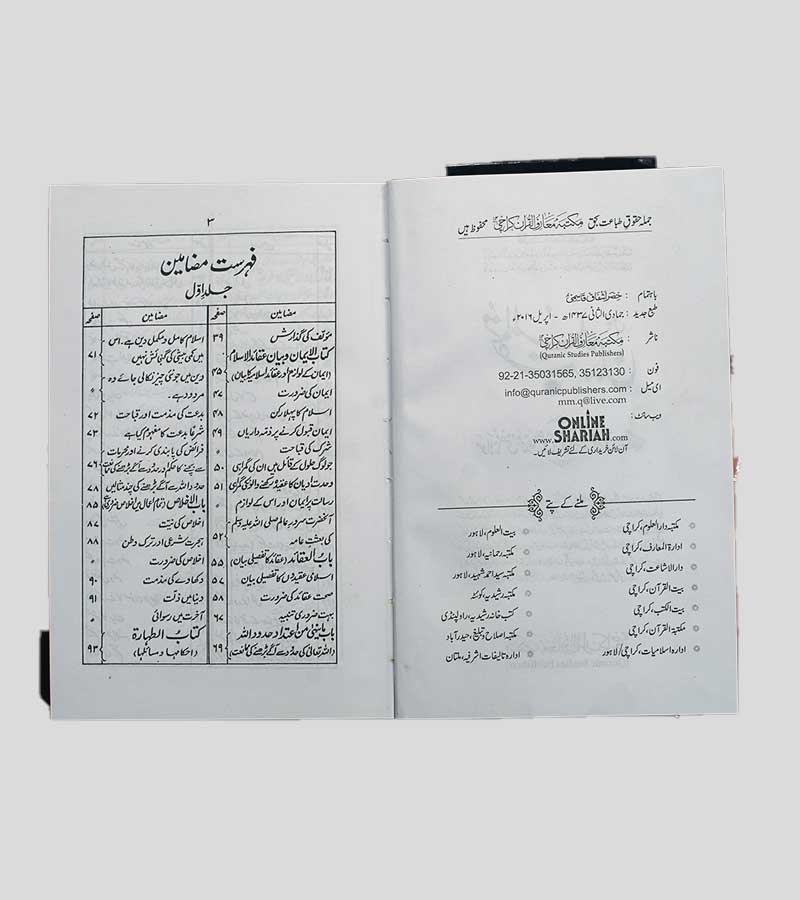 جملہ حقوقِ طباعت بحق مکتبہ معارف القرآن کراچی محفوظ ہیں
باہتمام : خضر اشفاق قاسمی
طبع جدید : جمادی الثانی ۱۴۳۷ھ - اپریل ۲۰۱۶ء
ناشر : مکتبہ معارف القرآن کراچی
(Quranic Studies Publishers)
فون : 92-21-35031565, 35123130
ای میل : info@quranicpublishers.com
mm.q@live.com
ویب سائٹ :
ONLINE
SHARIAH
www. .com
آن لائن خریداری کے لئے تشریف لائیں۔
ملنے کے پتے
مکتبہ دارالعلوم، کراچی
ادارۃ المعارف، کراچی
دارالاشاعت، کراچی
بیت القرآن، کراچی
بیت الکتب، کراچی
مکتبۃ القرآن، کراچی
ادارہ اسلامیات، کراچی/لاہور
بیت العلوم، لاہور
مکتبہ رحمانیہ، لاہور
مکتبہ سید احمد شہید، لاہور
مکتبہ رشیدیہ، کوئٹہ
کتب خانہ رشیدیہ، راولپنڈی
مکتبہ اصلاح و تبلیغ، حیدرآباد
ادارہ تالیفات اشرفیہ، ملتان
۳
فہرست مضامین
جلد اوّل
مضامین صفحہ
مؤلف کی گذارش ۳۹
کتاب الایمان وبیان عقائد الاسلام
(ایمان کے لوازم اور عقائد اسلامیہ کا بیان) ۴۵
ایمان کی ضرورت ۴۷
اسلام کا پہلا رکن ۴۸
ایمان قبول کرنے پر ذمہ داریاں ۴۹
شرک کی قباحت ٭
جو لوگ حلول کے قائل ہیں ان کی گمراہی ۵۰
وحدت ادیان کا عقیدہ رکھنے والوں کی گمراہی ۵۱
رسالت پر ایمان اور اس کے لوازم ٭
آنحضرت سرورِ عالم صلی اللہ علیہ وسلم
کی بعثتِ عامہ ۵۲
باب العقائد (عقائد کا تفصیلی بیان) ۵۵
اسلامی عقیدوں کا تفصیلی بیان ۵۷
صحت عقائد کی ضرورت ۵۸
بہت ضروری تنبیہ ۶۷
باب ما ینہی من اعتداء حدود اللہ
(اللہ تعالیٰ کی حدود سے آگے بڑھنے کی ممانعت) ۶۹
مضامین صفحہ
اسلام کامل و مکمل دین ہے۔ اس
میں کمی بیشی کی گنجائش نہیں ۷۱
دین میں جو نئی چیز نکالی جائے وہ
مردود ہے۔ ٭
بدعت کی مذمت اور قباحت ۷۲
شرعاً بدعت کا مفہوم کیا ہے ۷۳
فرائض کی پابندی کرنے اور محرمات
سے بچنے کا حکم اور حدود سے آگے بڑھنے کی ممانعت ۷۶
حدود اللہ سے آگے بڑھنے کی چند مثالیں ۷۸
باب الاخلاص (تمام اعمال میں اخلاص ضروری ہے) ۸۵
اخلاص کی نیت ۸۷
ہجرت شرعی اور ترک وطن ۸۸
اخلاص کی ضرورت ٭
دکھاوے کی مذمت ۹۰
دنیا میں ذلت ۹۱
آخرت میں رسوائی ٭
کتاب الطہارۃ
(احکامہا و مسائلہا) ۹۳